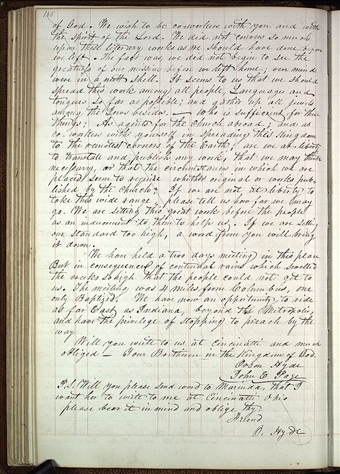 of God. We wish to be co-workers with you and with
the spirit of the Lord. We did not converse so much
upon these literary works as we should have done before
we left. The fact was, we did not begin to see the
greatness of our mission before we left home, our minds
were in a nut shell. It seems to us that we should
spread this work among all people, Languages and
tongues so far as possible; and gather up all jewels
among the Jews besides. — Who is sufficient for these
things? As agents for the Church abroad; and as
co-workers with yourself in spreading this Kingdom
to the remotest corners of the Earth; are we at liberty
to translate and publish any works, that we may think
necessary, or that the circumstances in which we are
placed seem to require, whether original or works pub-
lished by the Church? If we are not at liberty to
take this wide range, please tell us how far we may
go. We are setting this great work before the people
as an inducement to them to help us, If we are setting
our standard too high, a word from you will bring
it down.
We have held a two days meeting in this place
But in consequence of continual rains which swelled
the creeks so high that the people could not get to
us. The meeting was 4 miles from Columbus, one
only Baptized. We have now an opportunity to ride
as far East as Indiana, beyond the Metropolis,
and have the privilege of stopping to preach by the
way
Will you write to us at Cincinnati and much
obliged — Your Brethren in the Kingdom of God.
Orson Hyde
John E. Page
P.S. Will you please send word to Marinda, that I
want her to write to me at Cincinnati Ohio
please bear it in mind and oblige thy
friend
O. Hyde